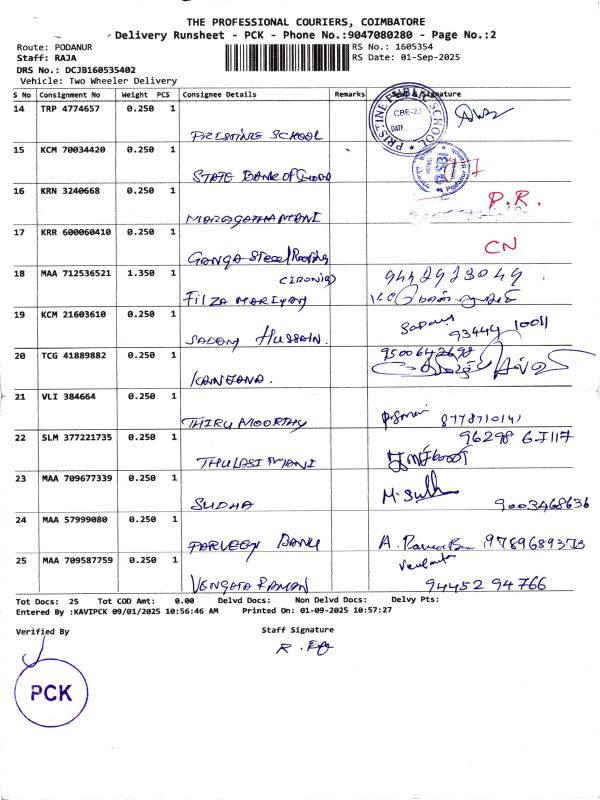 THE PROFESSIONAL COURIERS, COIMBATORE
Delivery Runsheet - PCK - Phone No.:9047080280 - Page No.:2
Route: PODANUR
RS No.: 1605354
Staff: RAJA
RS Date: 01-Sep-2025
DRS No.: DCJB160535402
Vehicle: Two Wheeler Delivery
S No Consignment No Weight PCS Consignee Details Remarks Signature
14 TRP 4774657 0.250 1
PRISTINE SCHOOL
PRISTINE PUBLIC SCHOOL
CBE-23
DATE
15 KCM 70034420 0.250 1
STATE BANK OF
SBI
Podanur Branch
16 KRN 3240668 0.250 1
MARAGATHAMANI
P.R.
17 KRR 600060410 0.250 1
GANGA Steel/Roofing
CN
18 MAA 712536521 1.350 1
FILZA MARIYAM
9442923049
19 KCM 21603610 0.250 1
SADAM HUSSAIN.
Sadam
93444 10011
20 TCG 41889882 0.250 1
KANJANA.
9500642698
21 VLI 384664 0.250 1
THIRU MOORTHY
8778710141
22 SLM 377221735 0.250 1
THULASI MANI
96298
23 MAA 709677339 0.250 1
SUDHA
M. Sudha
9003468636
24 MAA 57999080 0.250 1
PARVEEN BANU
A. 
25 MAA 709587759 0.250 1
VENGATA RAMAN
94452 94766
Tot Docs: 25 Tot COD Amt: 0.00 Delvd Docs: Non Delvd Docs: Delvy Pts:
Entered By :KAVIPCK 09/01/2025 10:56:46 AM Printed On: 01-09-2025 10:57:27
Verified By
Staff Signature
PCK